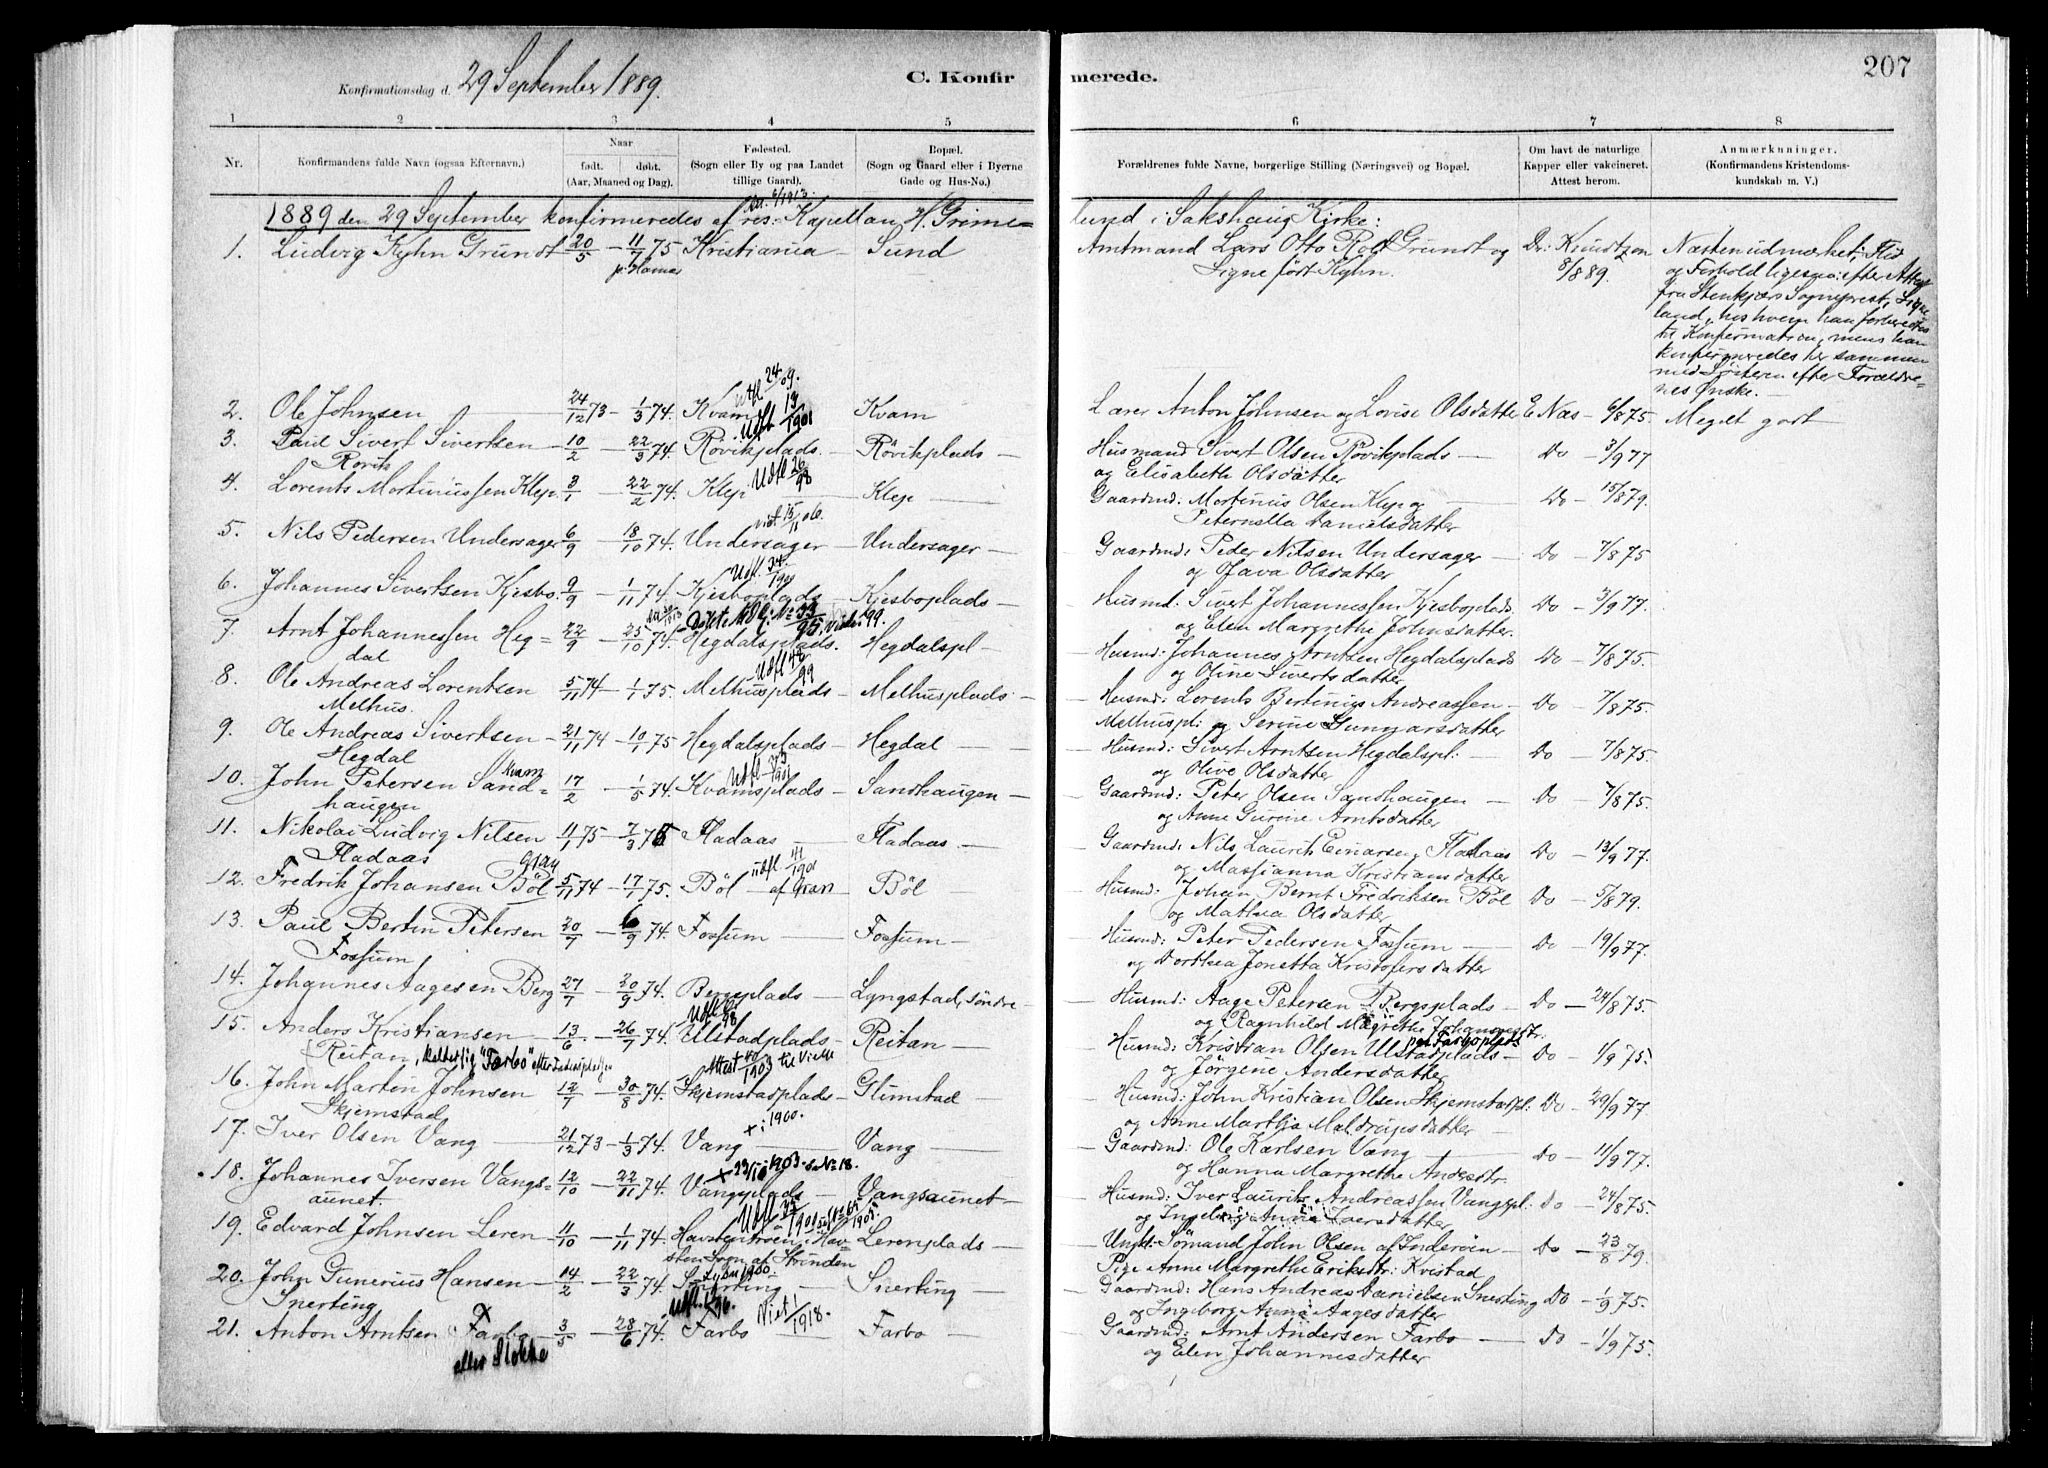 Konfirmationsdag d. 29 September 1889.
C. Konfir
merede.
207
1 2 3 4 5 6 7 8
Nr. Konfirmandens fulde Navn (ogsaa Efternavn). Naar født. døbt. (Aar, Maaned og Dag). Fødested. (Sogn eller By og paa Landet tillige Gaard). Bopæl. (Sogn og Gaard eller i Byerne Gade og Hus-No.) Forældrenes fulde Navne, borgerlige Stilling (Næringsvei) og Bopæl. Om havt de naturlige Kapper eller vakcineret. Attest herom. Anmærkninger. (Konfirmandens Kristendomskundskab m. V.)
1889 den 29 September konfirmeredes af res: Kapellan H. Grime=lund i Sakshaug Kirke:
1. Ludvig Kyhn Grundt 20/5 – 11/7 75 Kristiania – Sund Amtmand Lars Otto Roll Grundt og Dr: Knudtzon Næsten udmærket; Flid
Signe født Kyhn. 8/889. og Forhold ligesaa: efter Attest
fra Stenkjærs Sogneprest,
land, hos hvem han forberedtes
til Konfirmation, mens han
konfirmeredes her sammen
med Søsteren efter Forældre=
nes Ønske.
2. Ole Johnsen 24/12 73 – 1/3 74. Kvam Kvam Lærer Anton Johnsen og Lovise Olsdatter E Næs – 6/875. Meget godt
utfl 24/09.
3. Paul Sivert Sivertsen 10/2 – 22/3 74. Røvikplads. – Røvikplads – Husmand Sivert Olsen Røvikplads – Do – 3/977
Rovik og Elisabeth Olsdatter
Udfl 19/1901
4. Lorents Mortinussen Klep. 3/1 – 22/2 74. Klep Klep – Gaardmd: Mortinus Olsen Klep og Do – 15/879.
Udfl 26/98 Peternella Danielsdatter
5. Nils Pedersen Undersager 6/9 – 18/10 74. Undersager – Undersager – Gaardmd: Peder Nilsen Undersager – Do – 7/875
og Olava Olsdatter
6. Johannes Sivertsen Kjesbo. 9/9 – 1/11 74. Kjesboplads – Kjesboplads – Husmd. Sivert Johannessen Kjesboplads. Do – 3/977.
Udfl. 34/1900 og Elen Margrethe Johnsdatter.
7. Arnt Johannessen Heg= 22/9 – 25/10 74. Hegdalsplads. Hegdalspl – Husmd: Johannes Arntsen Hegdalsplads Do – 7/875.
dal og Oline Sivertsdatter
8. Ole Andreas Lorentsen 5/11 74 – 1/1 75. Melhusplads – Melhusplads – Husmd: Lorents Bertinius Andreassen – Do – 7/875.
Melhus. Udfl 48/99 Melhuspl: og Serine Gunnarsdatter
9. Ole Andreas Sivertsen – 21/11 74 – 10/1 75 Hegdalsplads – Hegdal – Husmd: Sivert Arntsen Hegdalspl: Do – 7/875.
Hegdal og Olive Olsdatter
10. John Petersen Sand= 17/2 – 1/5 74. Kvamsplads – Sandhaugen – Gaardmd: Peter Olsen Sandhaugen – Do – 7/875.
haugen Kvam og Anne Gurine Arntsdatter
11. Nikolai Ludvig Nilsen 11/1 75 – 7/3 75 Fladaas – Fladaas – Gaardmd: Nils Laurits Einarsen Fladaas Do – 13/977.
Fladaas og Massianna Kristiansdatter
12. Fredrik Johansen Böl 5/11 74 – 17/1 75. Böl – af Gran – Böl – Husmd: Johan Bernt Fredriksen Böl Do – 5/879.
Gran udfl 14/1901 og Mathea Olsdatter
13. Paul Bertin Petersen 20/7 – 6/9 74. Fossum – Fossum – Husmd: Peter Pedersen Fossum – Do – 19/977.
Fossum og Dorthea Jonetta Kristofersdatter
14. Johannes Aagesen Berg 27/7 – 20/9 74. Bergsplads – Lyngstad, Söndre – Husmd: Aage Petersen Bergsplads – Do – 24/875.
og Ragnhild Magrethe Johannesdtr.
15. Anders Kristiansen – 13/6 – 26/7 74. Ulstadplads – Reitan – Husmd: Kristian Olsen Ulstadplads – Do – 1/975.
Reitan, kalder sig "Farbo" og Jørgine Andersdatter
16. John Martin Johnsen 12/7 – 30/8 74. Skjemstadplads – Glimstad – Husmd: John Kristian Olsen Skjemstadpl: Do – 29/977
Skjemstad Attest 40/1903 til Vielse og Anne Martha Maldrupsdatter
17. Iver Olsen Vang – 21/12 73 – 1/3 74. Vang Vang – Gaardmd: Ole Karlsen Vang – Do – 11/977.
+ i 1900. og Hanna Margrethe Andersdtr.
18. Johannes Iversen Vangs= 12/10 – 22/11 74. Vangsplads – Vangsaunet – Husmd: Iver Laurits Andreassen Vangspl: Do – 24/875.
aunet. + 23/10 1903. s. No 18. og Ingeborg Anna Iversdatter
19. Edvard Johnsen Leren – 11/10 – 1/11 74. Havstentrøen i Hav= Lerenplads – Ungk: Sømand John Olsen af Inderöen – Do – 23/8 79.
sten Sogn af Strinden Pige Anne Margrethe Eriksdtr: Kvistad
20. John Gunerius Hansen – 14/2 – 22/3 74. Snerting – Snerting – Gaardmd: Hans Andreas Danielsen Snerting Do – 1/9 75.
Snerting og Ingeborg Anna Aagesdatter
21. Anton Arntsen Farbo – 3/5 – 28/6 74. Farbo – Farbo – Gaardmd: Arnt Andersen Farbo – Do – 1/975.
eller Stokke Viet 1/1918. og Elen Johannesdatter